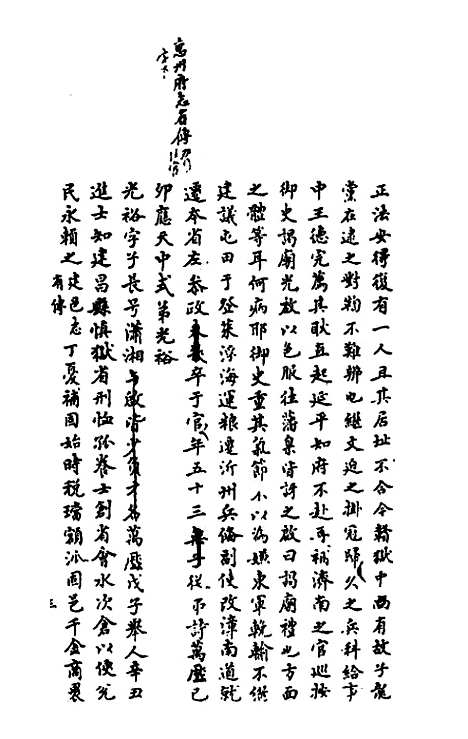 惠州府志有傳
正法安得復有一人且其居址不合今繫獄中西有故尹龍
棠在逮之對鞫不難辨也繼文迫之掛冠歸久之兵科給事
中王德完薦其耿直起延平知府不赴再補濟南之官巡按
御史謁廟光啟以色服往藩臬皆訝之啟曰謁廟禮也方面
之體等耳何病耶御史重其氣節不以為嫌東軍輓輸不繼
建議屯田于登萊浮海運粮遷沂州兵備副使改漳南道就
遷本省左參政卒于官年五十三子從詩萬曆己
卯應天中式弟光裕
光裕字子長号瀟湘與啟皆少負才名萬曆戊子舉人辛丑
進士知建昌縣慎獄省刑恤孤養士創省會水次倉以便兌
民永賴之建邑志有傳丁憂補固始時稅璫額派固邑千金商罷
三